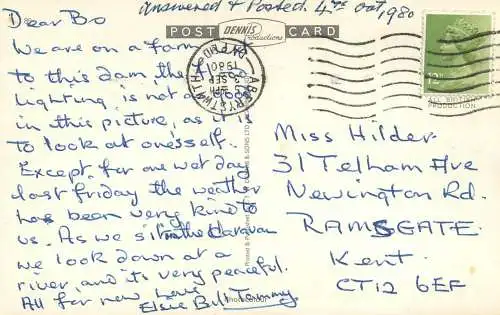 Answered & Posted. 4th Oct, 1980
Dear Bo
POST CARD
DENNIS
Productions
We are on a farm
to this dam, the
lighting is not as good
in this picture, as it is
to look at oneself.
Except for one wet day
last friday the weather
has been very kind to
us. As we sit in the Caravan
we look down at a
river, and its very peaceful.
All for now Love
Elsie Bill Tammy.
ABERYSTWYTH
DYFED
SEP
1980
ALL BRITISH
PRODUCTION
Miss Hilder
31 Telham Ave
Newington Rd.
RAMSGATE
Kent.
CT12 6EF